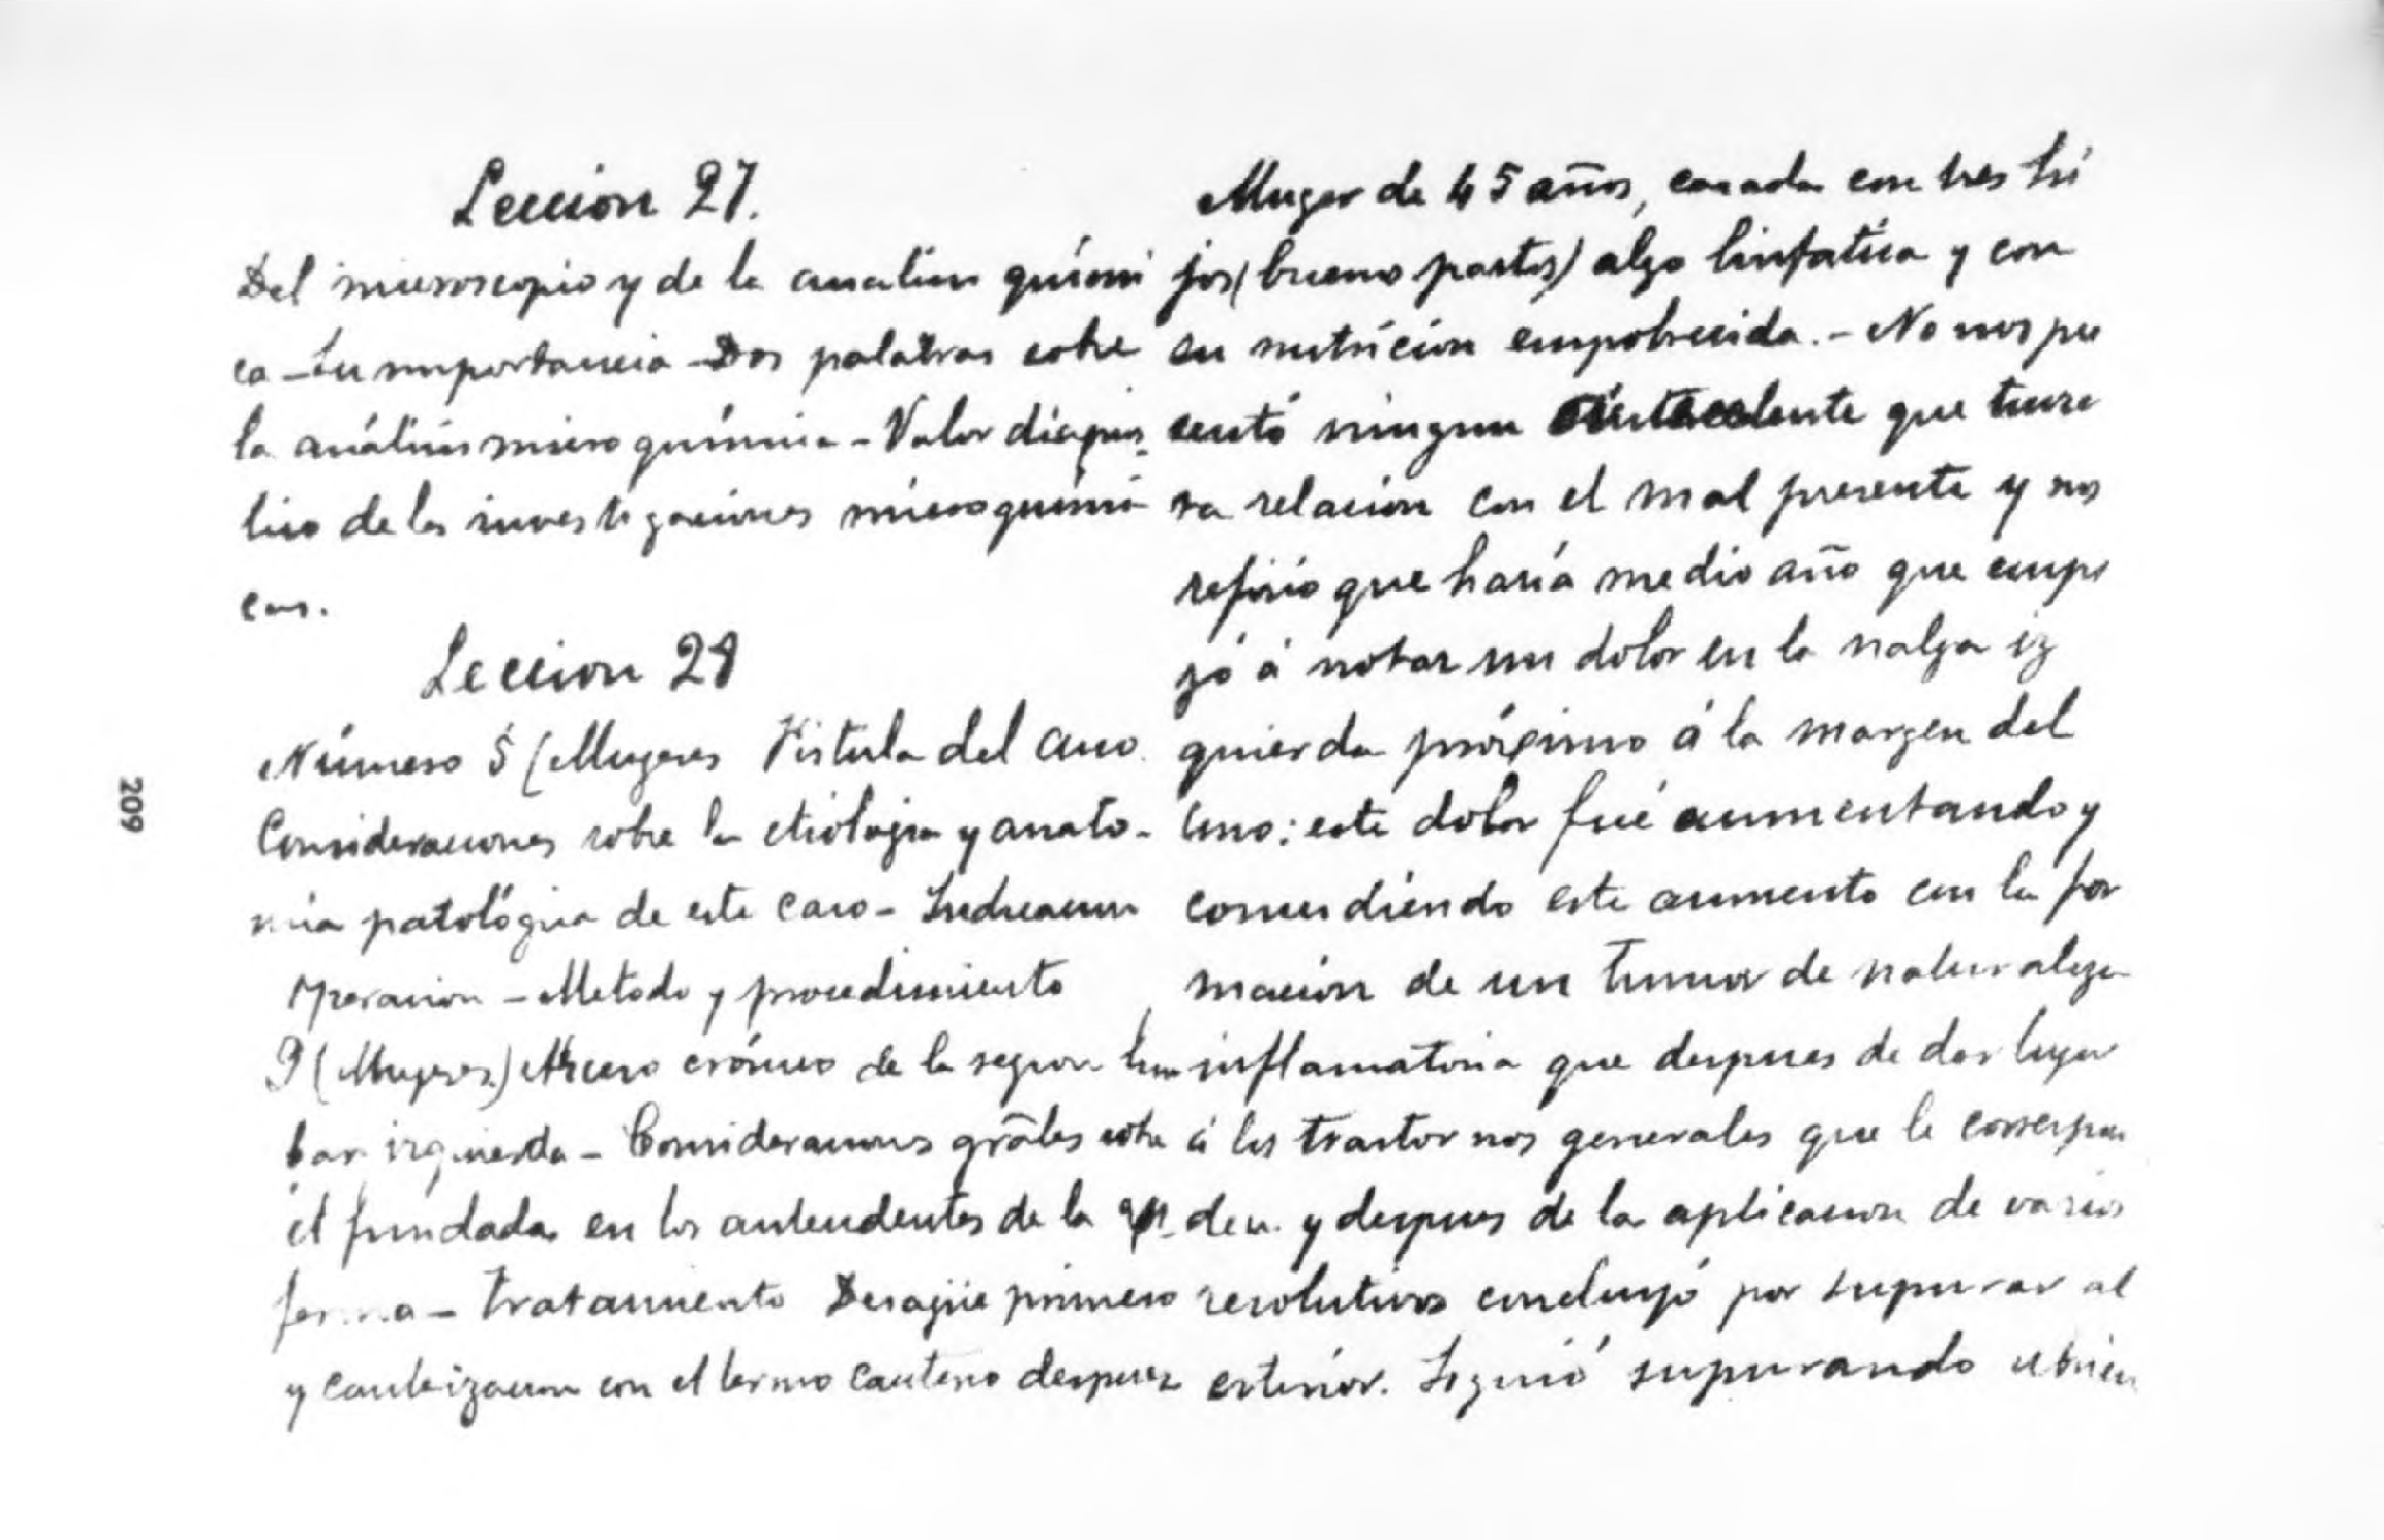 Leccion 27.
Del microscopio y de la analisis químí
ca - Su importancia - Dos palabras sobre
la análisis micro química - Valor diagnos-
tico de las investigaciones microquími
cas.
Leccion 28
Número 5 (Mugeres Fistula del ano.
Consideraciones sobre la etiologia y anato-
mia patológica de este caso - Indicacion
Operacion - Metodo y procedimiento
9 (Mugeres) Absceso crónico de la region lum
bar izquierda - Consideraciones grãles sobre
él fundadas en los antecedentes de la
- tratamiento Desagüe primero
y cauterizacion con el termo cauterio despues
Muger de 45 años, casada con tres hi
jos (bueno partos) algo linfatica y con
su nutrición empobrecida. - No nos pre
sentó ningun antecedente que tuvie
ra relacion con el mal presente y nos
refirio que haría medio año que empe
zó á notar un dolor en la nalga iz
quierda próximo á la margen del
ano: este dolor fué aumentando y
coincidiendo este aumento con la for
macion de un tumor de naturaleza
inflamatoria que despues de dar lugar
á los trastornos generales que le correspon
den. y despues de la aplicacion de varios
resolutivos concluyó por supurar al
esterior. Siguió supurando
209